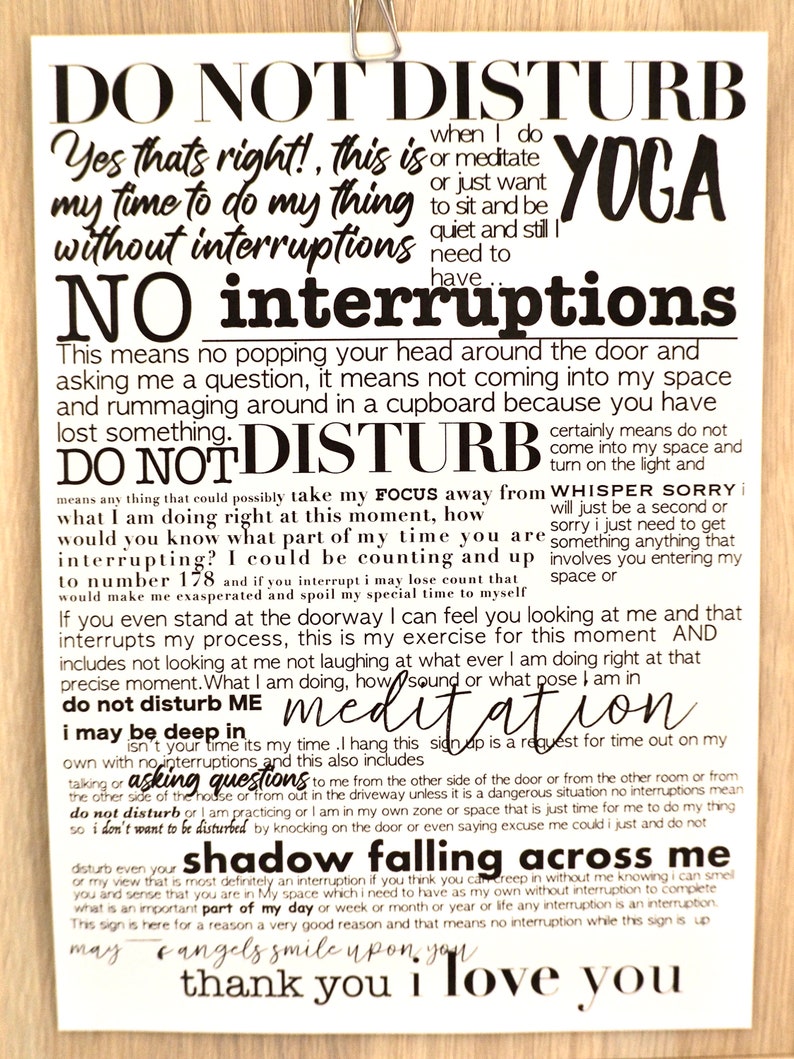 DO NOT DISTURB
Yes thats right!, this is
my time to do my thing
without interruptions
when I do
or meditate
or just want
to sit and be
quiet and still I
need to
have ..
YOGA
NO interruptions
This means no popping your head around the door and
asking me a question, it means not coming into my space
and rummaging around in a cupboard because you have
lost something.
DO NOT DISTURB
certainly means do not
come into my space and
turn on the light and
WHISPER SORRY i
will just be a second or
sorry i just need to get
something anything that
involves you entering my
space or
means any thing that could possibly take my FOCUS away from
what I am doing right at this moment, how
would you know what part of my time you are
interrupting? I could be counting and up
to number 178 and if you interrupt i may lose count that
would make me exasperated and spoil my special time to myself
If you even stand at the doorway I can feel you looking at me and that
interrupts my process, this is my exercise for this moment AND
includes not looking at me not laughing at what ever I am doing right at that
precise moment.What I am doing, how I sound or what pose I am in
do not disturb ME
i may be deep in
meditation
isn't your time its my time .I hang this sign up is a request for time out on my
own with no interruptions and this also includes
talking or asking questions to me from the other side of the door or from the other room or from
the other side of the house or from out in the driveway unless it is a dangerous situation no interruptions mean
do not disturb or I am practicing or I am in my own zone or space that is just time for me to do my thing
so i don't want to be disturbed by knocking on the door or even saying excuse me could i just and do not
disturb even your shadow falling across me
or my view that is most definitely an interruption if you think you can creep in without me knowing i can smell
you and sense that you are in My space which i need to have as my own without interruption to complete
what is an important part of my day or week or month or year or life any interruption is an interruption.
This sign is here for a reason a very good reason and that means no interruption while this sign is up
may angels smile upon you
thank you i love you